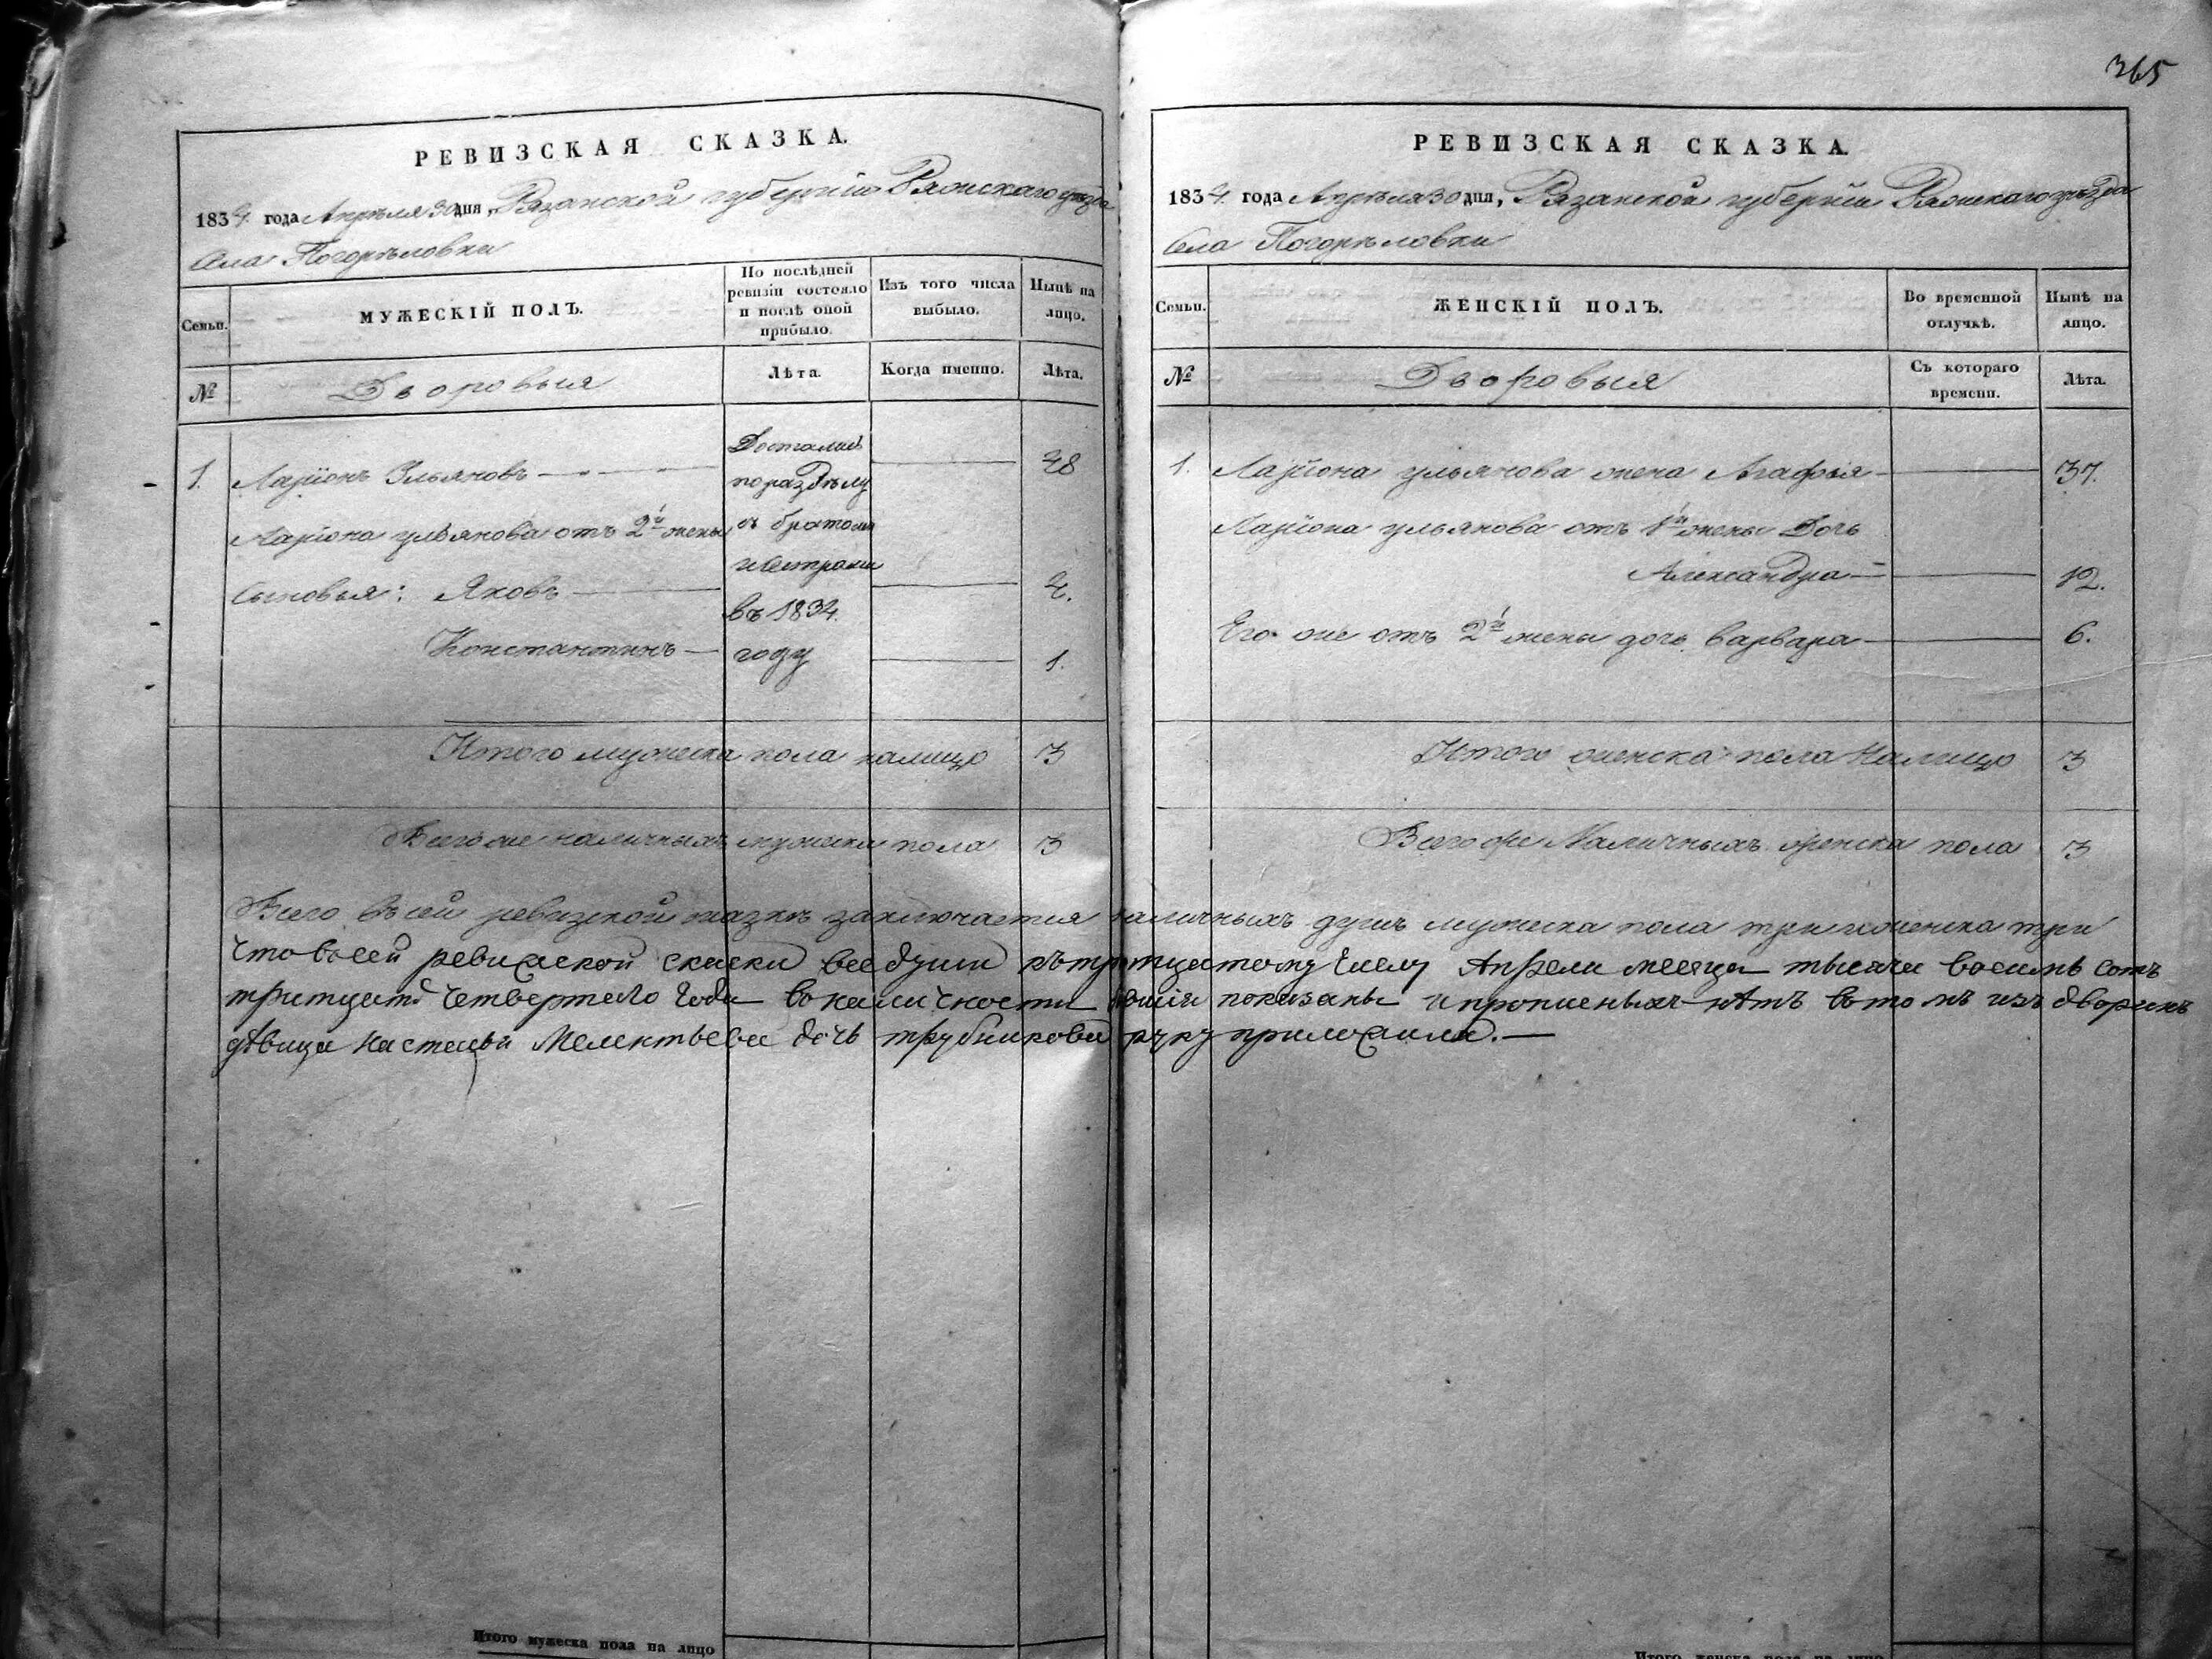 365
РЕВИЗСКАЯ СКАЗКА.
1834 года Апрѣля 30 дня, Рязанской губерніи Ряжскаго уѣзда
Села Погорѣловки
Семьи.
МУЖЕСКІЙ ПОЛЪ.
По послѣдней ревизіи состояло и послѣ оной прибыло.
Изъ того числа выбыло.
Нынѣ на лицо.
№
Дворовыя
Лѣта.
Когда именно.
Лѣта.
1. Ларіонъ Ульяновъ
Ларіона ульянова отъ 2й жены
Сыновья: Яковъ 4.
Константинъ 1.
Достались
по раздѣлу
съ братом
и сестрами
въ 1834.
году
Итого мужеска пола налицо 3
Всего же наличныхъ мужеска пола 3
РЕВИЗСКАЯ СКАЗКА.
1834 года Апрѣля 30 дня, Рязанской губерніи Ряжскаго уѣзда
Села Погорѣловки
Семьи.
ЖЕНСКІЙ ПОЛЪ.
Во временной отлучкѣ.
Нынѣ на лицо.
№
Дворовыя
Съ котораго времени.
Лѣта.
1. Ларіона ульянова жена Агафья 37.
Ларіона ульянова отъ 1й жены Дочь
Александра 12.
Его же отъ 2й жены дочь Варвара 6.
Итого женска пола Налицо 3
Всего же Наличныхъ женска пола 3
Всего в сей ревизской сказкѣ заключается наличныхъ душъ мужеска пола три и женска три
Что восей ревиской скаски все души къ тритцатому числу Апрели месяца тысяча восимь сотъ
тритцать четвертаго года воналичности показаны и прописныхъ нѣтъ втомъ изъ дворянъ
дѣвица Настасья Мелентьева дочь трубникова руку приложила.
Итого мужеска пола на лицо
Итого женска пола на лицо